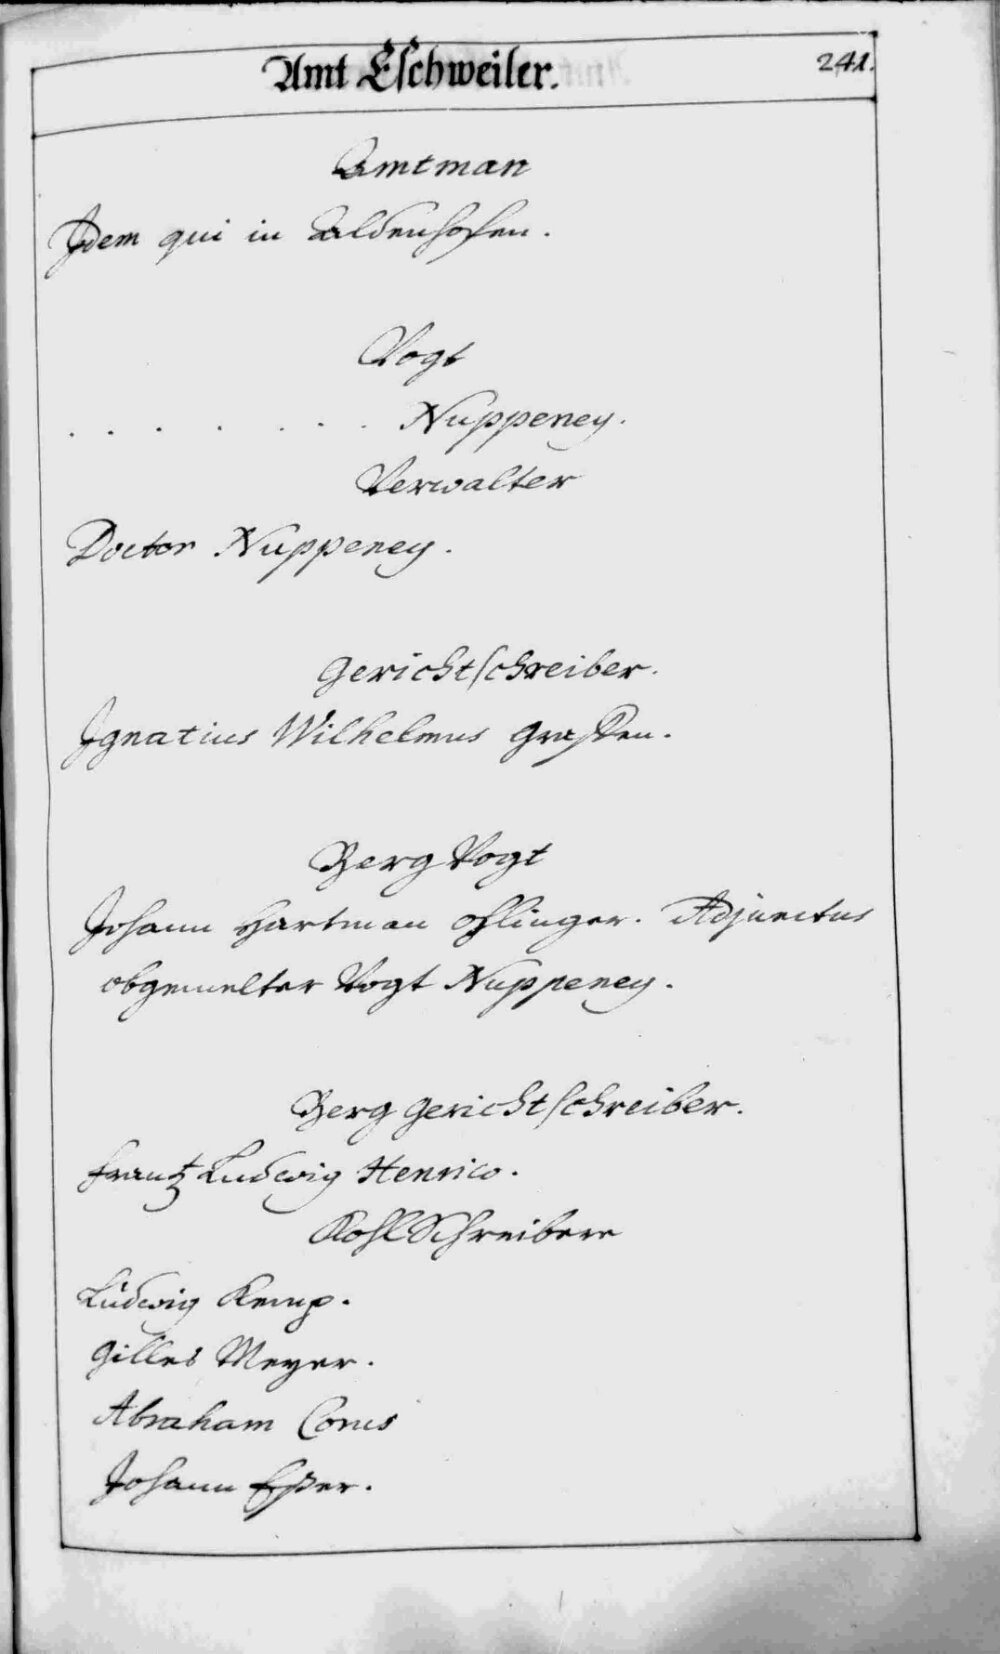 Amt Eschweiler.
241.
Amtman
Idem qui in Aldenhofen.
Vogt
. . . . . . . Nuppeney.
Verwalter
Doctor Nuppeney.
Gerichtschreiber.
Ignatius Wilhelmus
Berg Vogt
Johann Hartman Ohlinger. Adjunctus
obgemelter Vogt Nuppeney.
Berg Gerichtschreiber.
Frantz Ludwig Henrico.
Kohl Schreibere
Ludwig Kemp.
Gilles Meyer.
Abraham
Johann Esser.